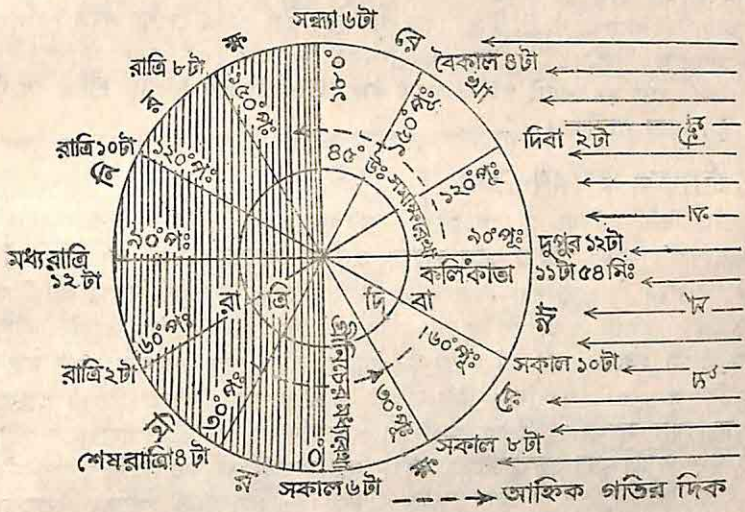 সন্ধ্যা ৬টা
বৈকাল ৪টা
দিবা ২টা
দুপুর ১২টা
কলিকাতা
১১টা ৫৪ মিঃ
সকাল ১০টা
সকাল ৮টা
সকাল ৬টা
শেষরাত্রি ৪টা
রাত্রি ২টা
মধ্যরাত্রি
১২টা
রাত্রি ১০টা
রাত্রি ৮টা
১৮০°
১৫০°পূঃ
১২০°পূঃ
৯০°পূঃ
৬০°পূঃ
৩০°পূঃ
০°
৩০°পঃ
৬০°পঃ
৯০°পঃ
১২০°পঃ
১৫০°পঃ
৪৫° উঃ সমাক্ষরেখা
রাত্রি
দিবা
গ্রীনিচের মধ্যরেখা
আহ্নিক গতির দিক